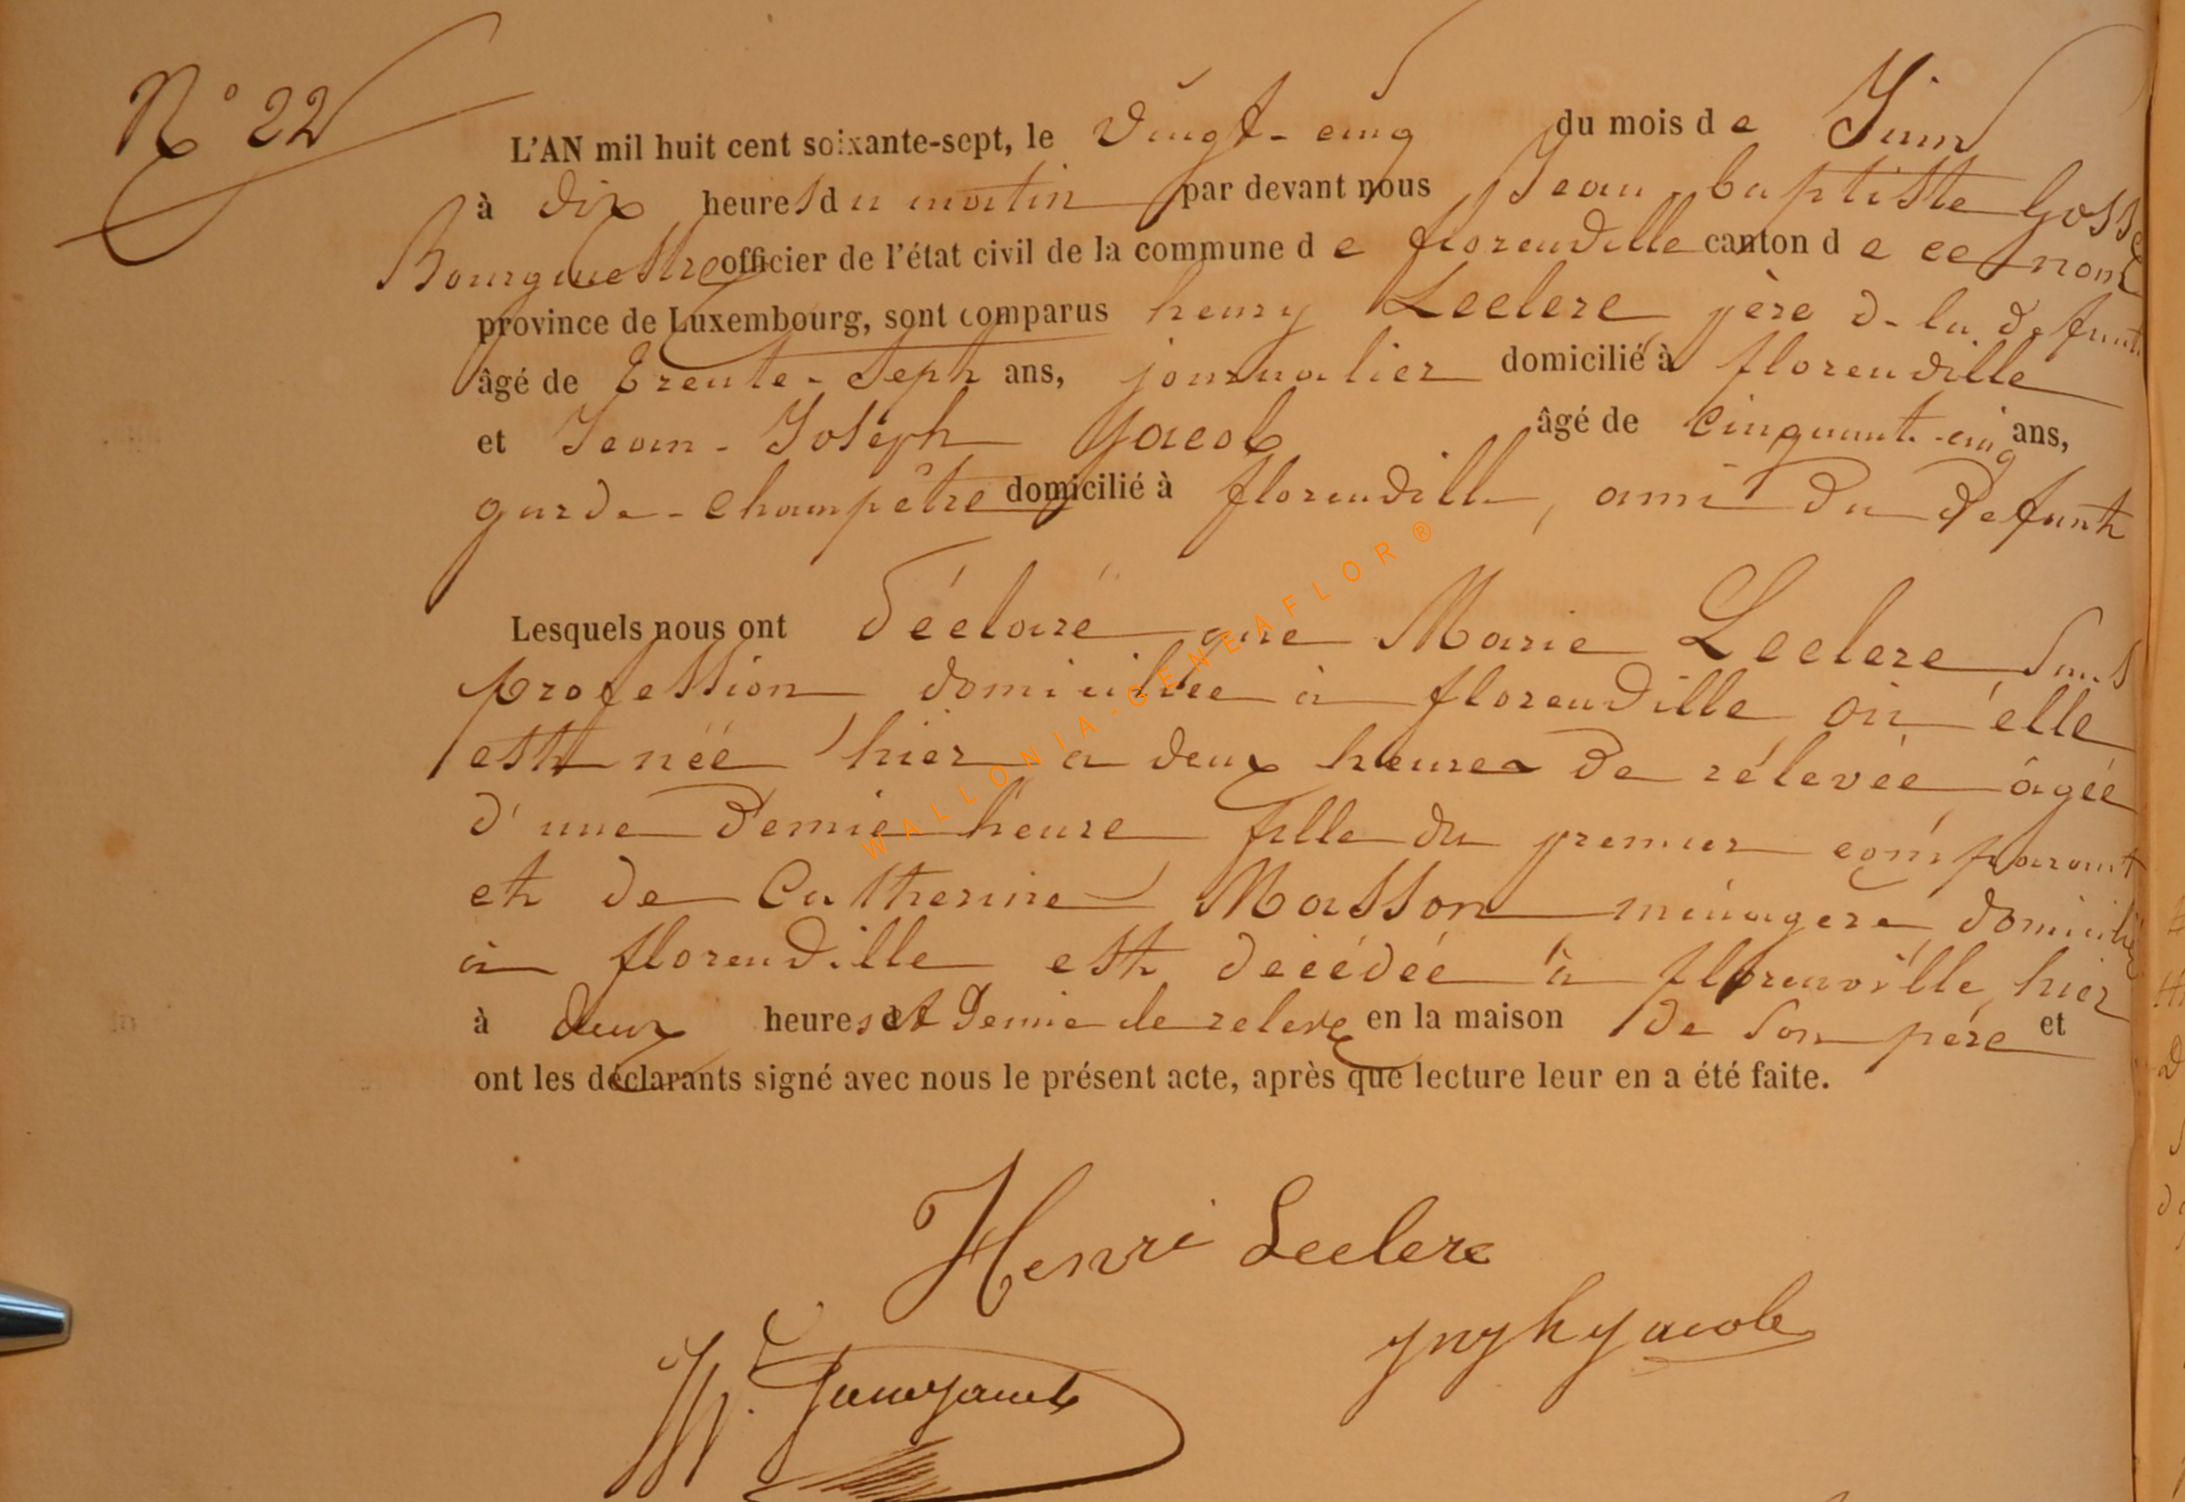 N° 22
L'AN mil huit cent soixante-sept, le vingt-cinq du mois de Juin
à dix heures du matin par devant nous Jean-baptiste Gosse
Bourgmestre officier de l'état civil de la commune de florenville canton de ce nom
province de Luxembourg, sont comparus henry Leclere père de la défunte
âgé de trente-sept ans, journalier domicilié à florenville
et Jean-Joseph Jacob âgé de cinquante-cinq ans,
garde-champêtre domicilié à florenville, ami du défunt
Lesquels nous ont déclaré que Marie Leclere sans
profession domiciliée à florenville où elle
est née hier a deux heures de rélevée âgée
d'une demie heure fille du premier comparant
et de Catherine Masson ménagère domicilié
à florenville est décédée à florenville hier
à deux heures et demie de relevé en la maison de son père et
ont les déclarants signé avec nous le présent acte, après que lecture leur en a été faite.
Henri Leclere
Jacob
WALLONIA-GENEAFLOR®